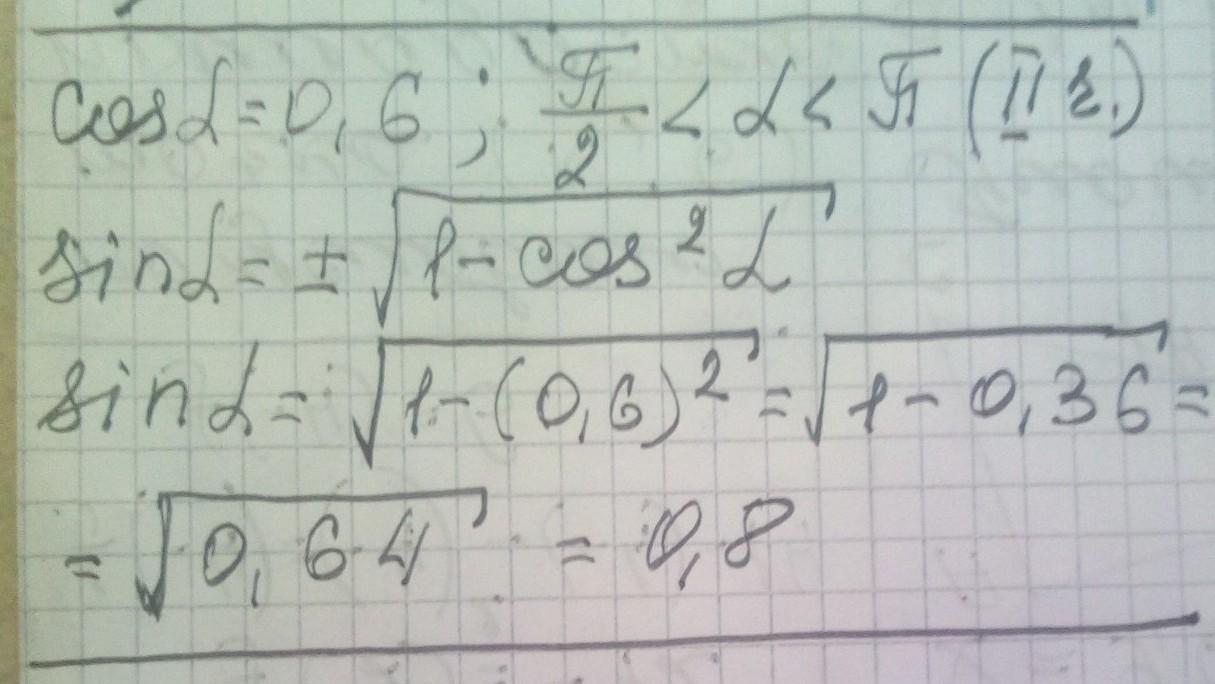 cosα = 0,6 ; π/2 < α < π (II ч.)
sinα = ± √(1 - cos²α)
sinα = √(1 - (0,6)²) = √(1 - 0,36) =
= √(0,64) = 0,8